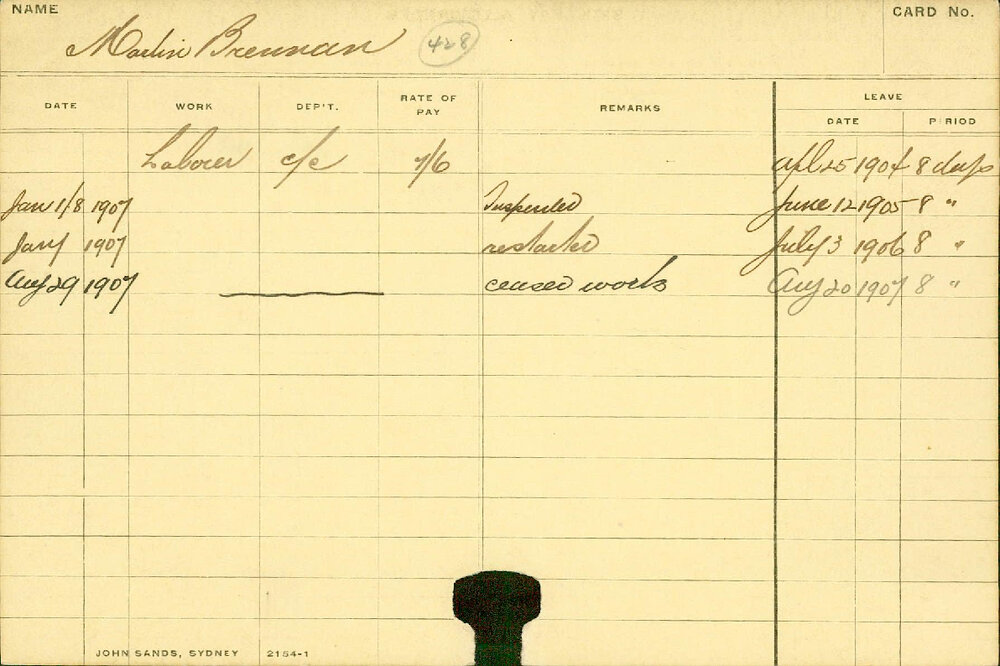 NAME
CARD No.
Martin Brennan 428
LEAVE
DATE WORK DEP'T. RATE OF PAY REMARKS DATE PERIOD
Laborer c/c 7/6 Apl 25 1904 8 days
Jan 1/8 1907 Suspended June 12 1905 8 "
Jany 1907 restarted July 3 1906 8 "
Aug 29 1907 ceased work Aug 20 1907 8 "
JOHN SANDS, SYDNEY 2154-1